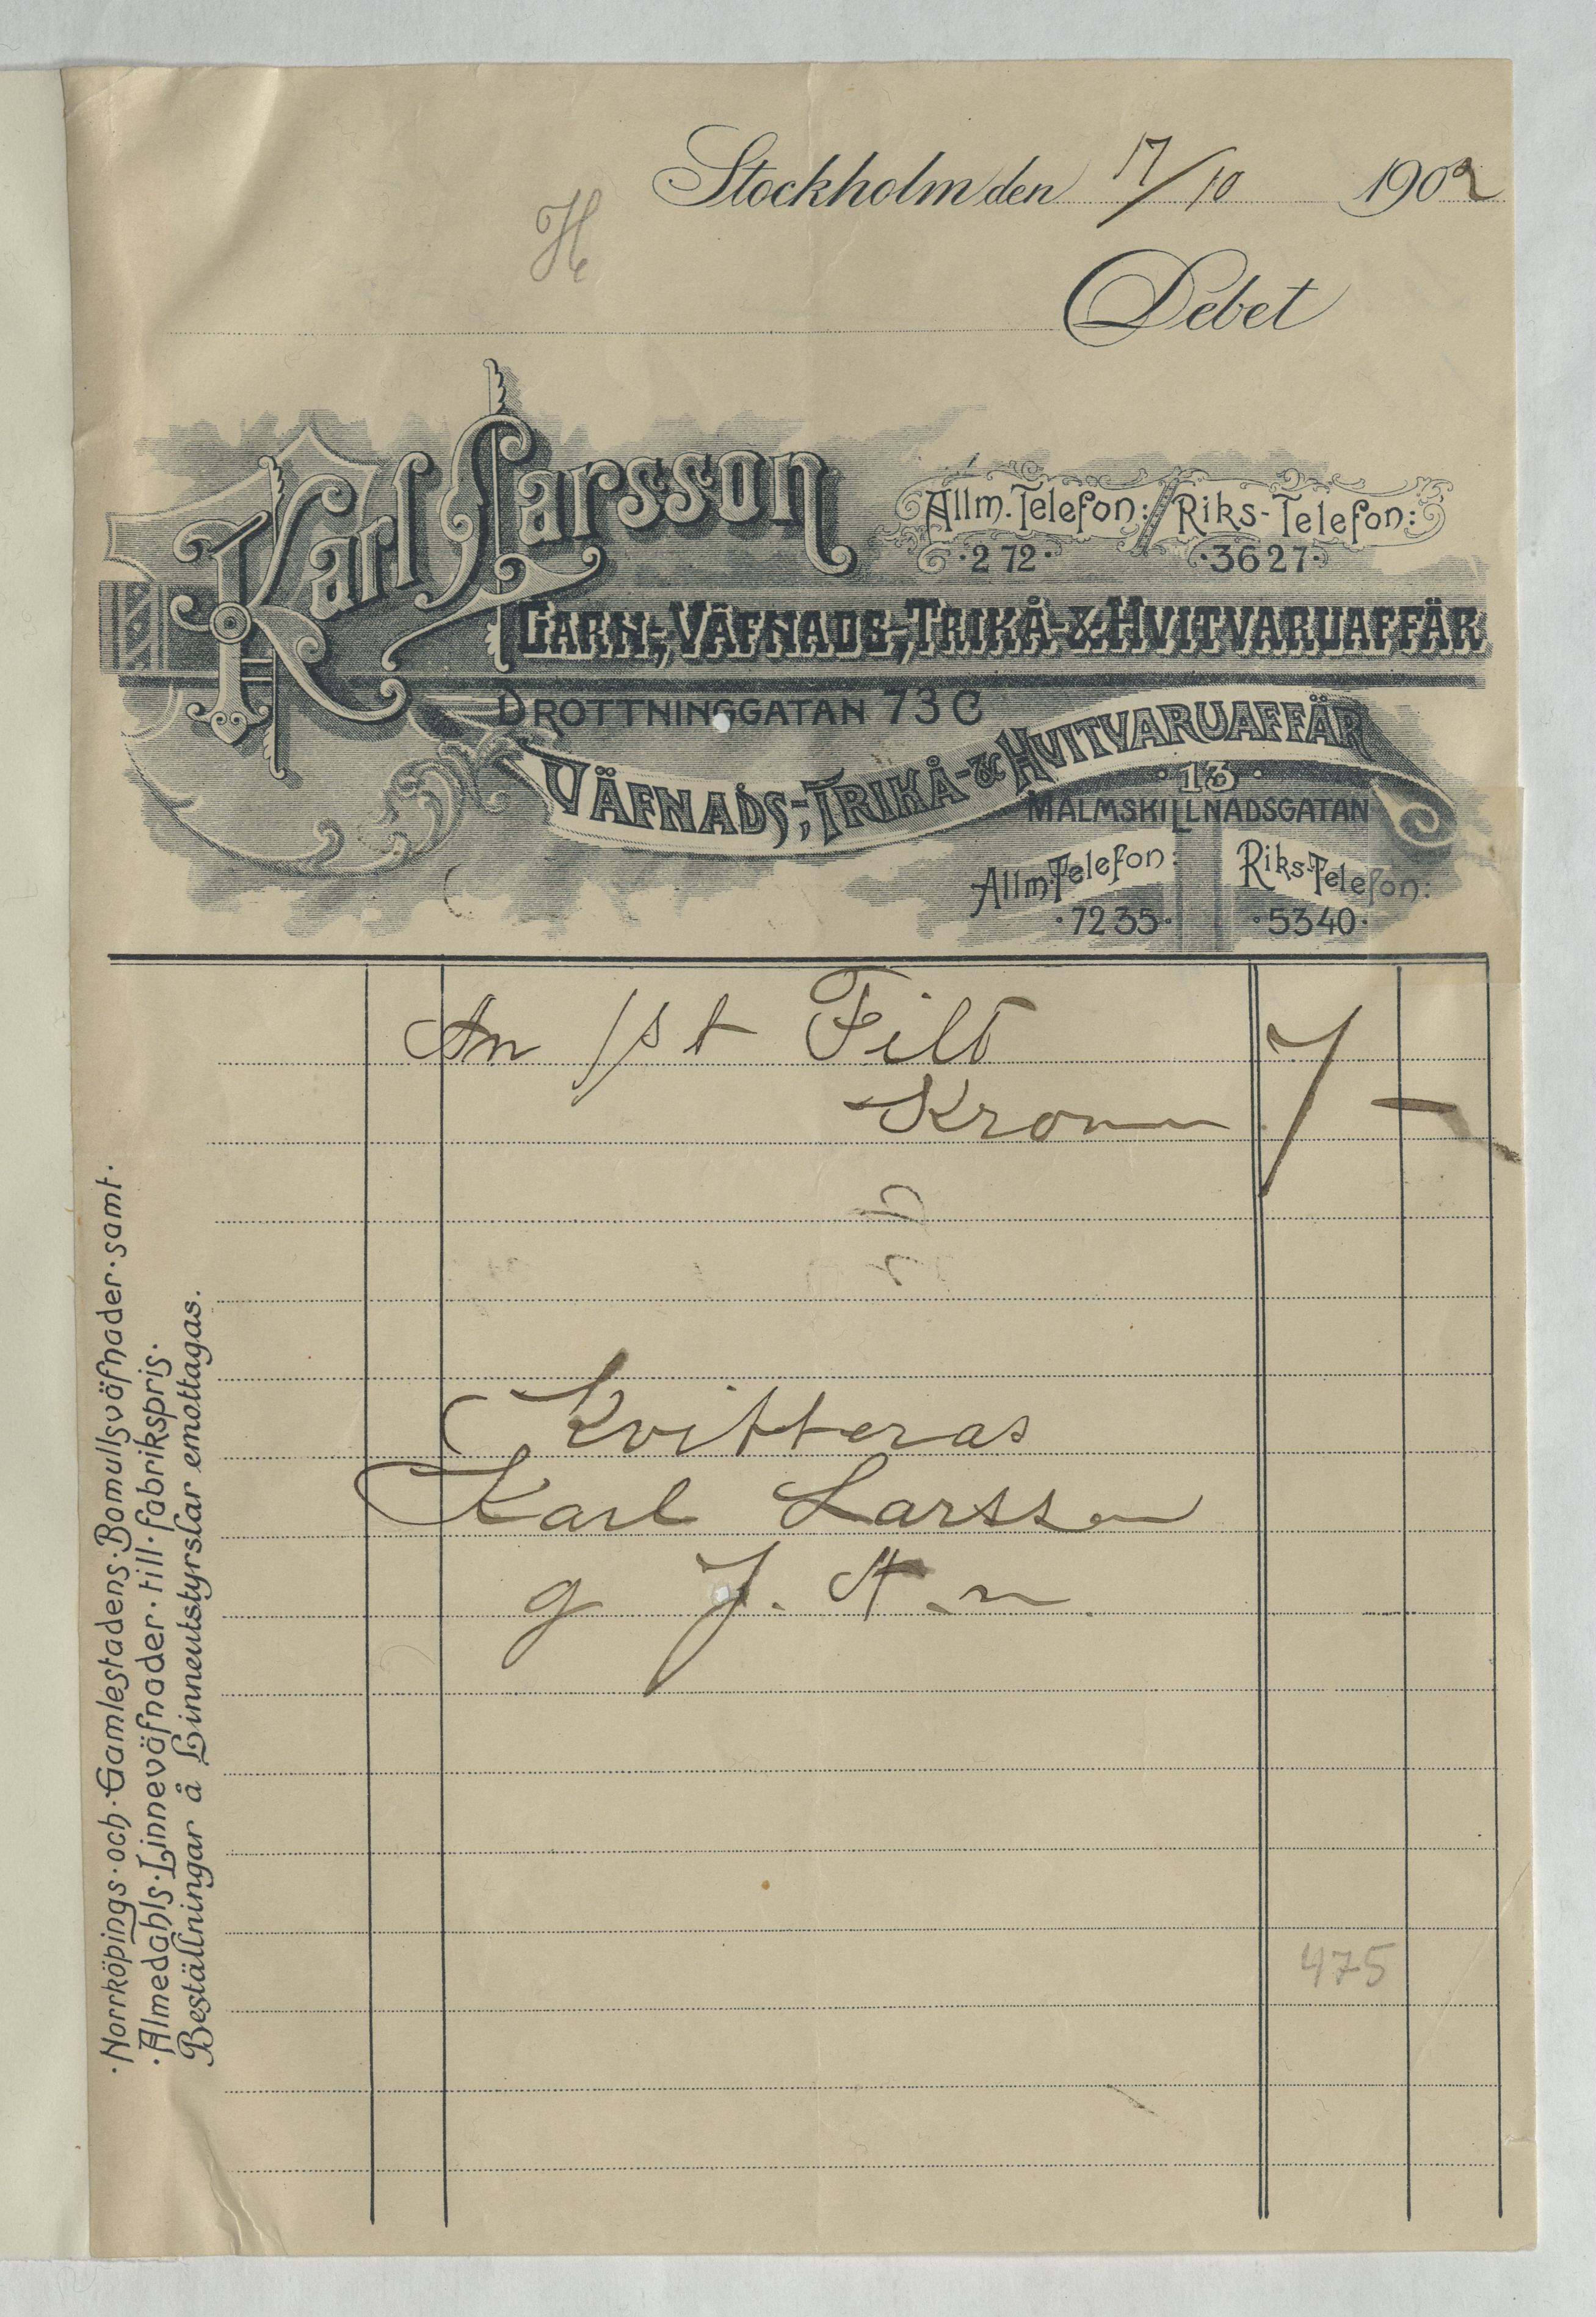 Stockholm den 17/10 1902
H
Debet
Karl Larsson
Allm. Telefon: Riks-Telefon:
·272· ·3627·
GARN-, VÄFNADS-, TRIKÅ- & HVITVARUAFFÄR
DROTTNINGGATAN 73 C
VÄFNADS-, TRIKÅ- & HVITVARUAFFÄR
·13·
MALMSKILLNADSGATAN
Allm. Telefon: Riks-Telefon:
·7235· ·5340·
An 1 st Filt
Kronor 7 —
Kvitteras
Karl Larsson
g J. A
475
·Norrköpings·och·Gamlestadens·Bomullsväfnader·samt·
·Almedahls·Linneväfnader·till·fabrikspris·
Beställningar å Linneutstyrslar emottagas.